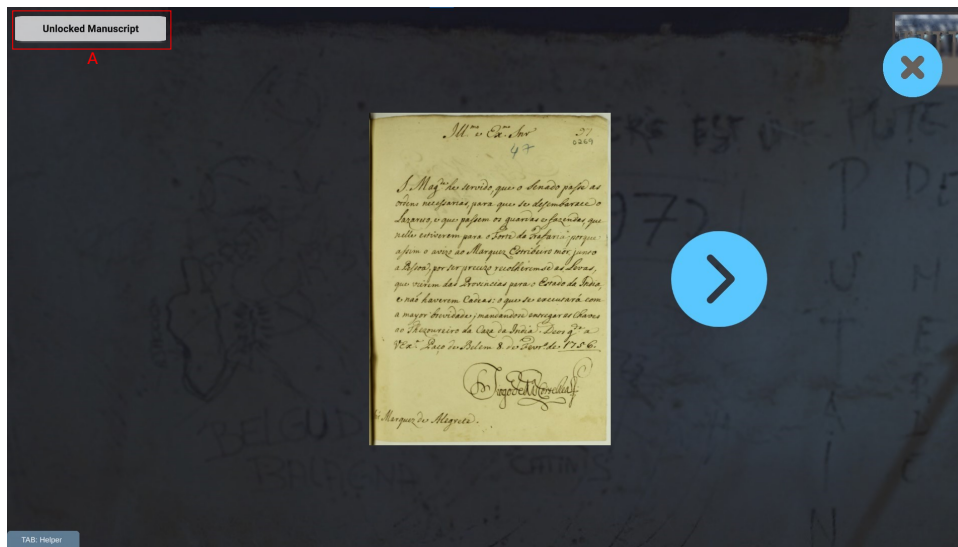 Unlocked Manuscript
A
Ill.mo e Ex.mo Snr
37
0269
47
S. Mag.e he servido, que o Senado passe as
ordens necessarias, para que se desembarace o
Lazareto, e que passem os guardas e fazendas, que
nelle estiverem para o Forte da Trafaria; porque
assim o avizo ao Marquez Estribeiro mór, junto
a Pessoa, por ser precizo recolheremse as Levas,
que vierem das Provincias para o Estado da India,
e não haverem Cadeas: o que se executará com
a mayor brevidade; mandandose entregar as Chaves
ao Thezoureiro da Caza da India. Deos g.e a
V Ex.a Paço de Belem 8 de Fevr.o de 1756.
Marquez de Alegrete.
EST
1972
P
U
T
A
I
N
BELGUD
BALAGNA
TAB: Helper